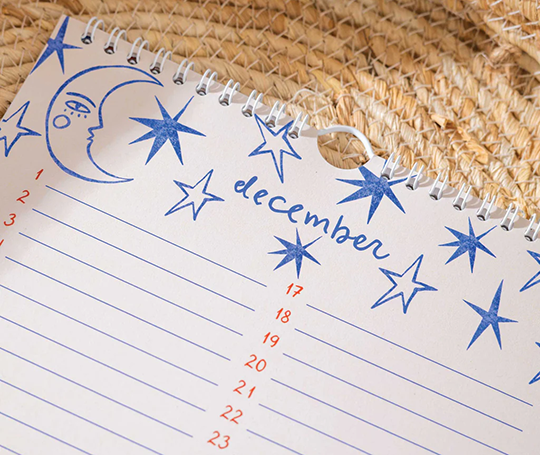 december
1
2
3
17
18
19
20
21
22
23